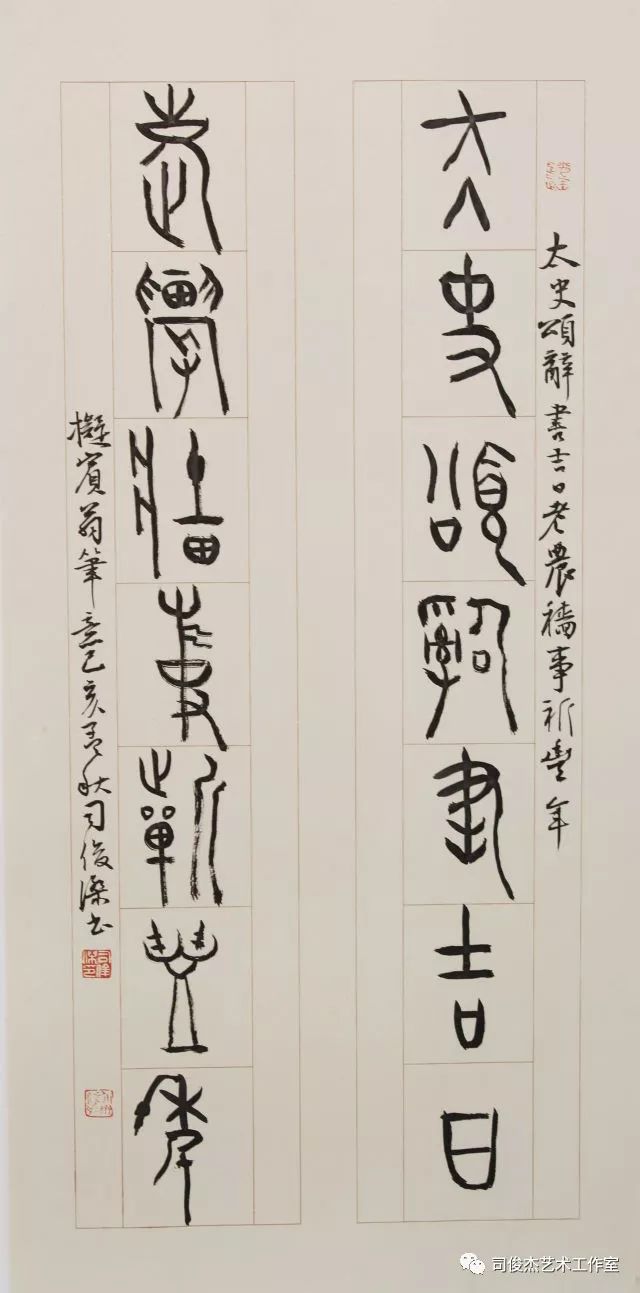 太史頌辭書吉日老農穡事祈豐年
大史頌辭書吉日
老農穡事祈豐年
擬賓翁筆意己亥孟秋司俊傑書
司俊杰艺术工作室